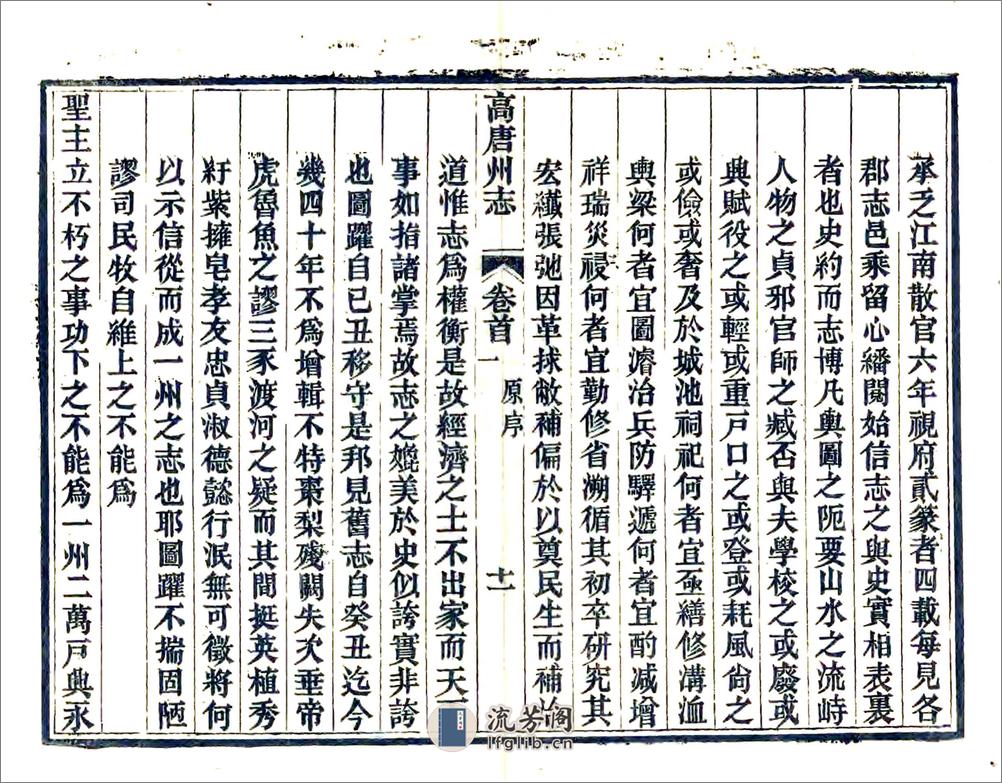 承乏江南散官六年視府貳篆者四載每見各
郡志邑乘留心繙閱始信志之與史實相表裏
者也史約而志博凡輿圖之阨要山水之流峙
人物之貞邪官師之臧否與夫學校之或廢或
興賦役之或輕或重戸口之或登或耗風尙之
或儉或奢及於城池祠祀何者宜亟繕修溝洫
輿梁何者宜圖濬治兵防驛遞何者宜酌減增
祥瑞災祲何者宜勤修省溯循其初卒研究其
宏纖張弛因革捄敝補偏於以奠民生而補
高唐州志
卷首一
原序
十一
道惟志爲權衡是故經濟之士不出家而天下
事如指諸掌焉故志之媲美於史似誇實非誇
也圖躍自已丑移守是邦見舊志自癸丑迄今
幾四十年不爲增輯不特棗梨殘闕失次亜帝
虎魯魚之謬三豕渡河之疑而其間挺英植秀
紆紫擁皂孝友忠貞淑德懿行泯無可徵將何
以示信從而成一州之志也耶圖躍不揣固陋
謬司民牧自維上之不能爲
聖主立不朽之事功下之不能爲一州二萬戸興永
流芳阁
lfglib.cn